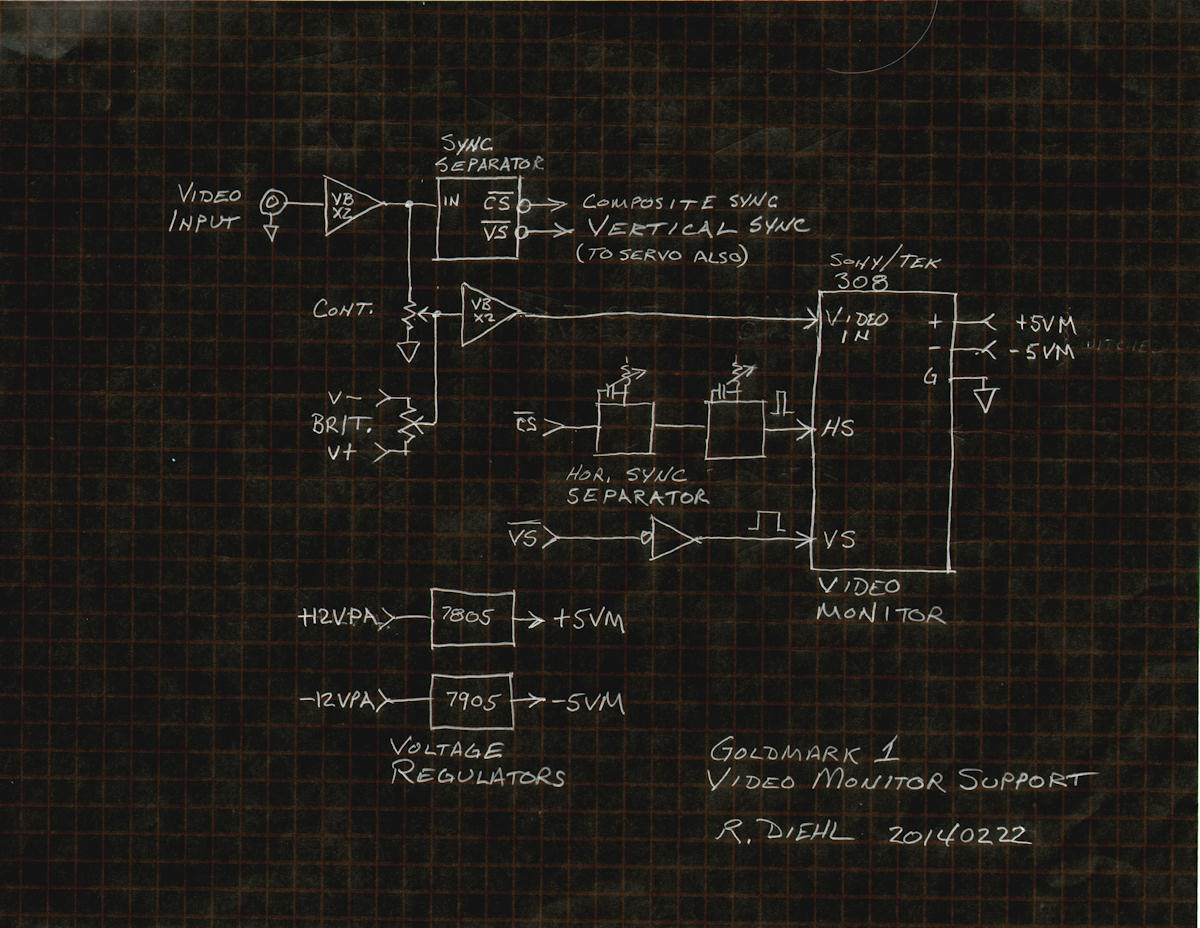 SYNC
SEPARATOR
VIDEO
INPUT
VB
X2
IN
C̅S̅
V̅S̅
COMPOSITE SYNC
VERTICAL SYNC
(TO SERVO ALSO)
SONY/TEK
308
CONT.
VB
X2
VIDEO
IN
+
+5VM
-
-5VM
G
V-
BRIT.
V+
C̅S̅
HS
HOR. SYNC
SEPARATOR
V̅S̅
VS
VIDEO
MONITOR
+12VPA
7805
+5VM
-12VPA
7905
-5VM
VOLTAGE
REGULATORS
GOLDMARK 1
VIDEO MONITOR SUPPORT
R. DIEHL 20140222